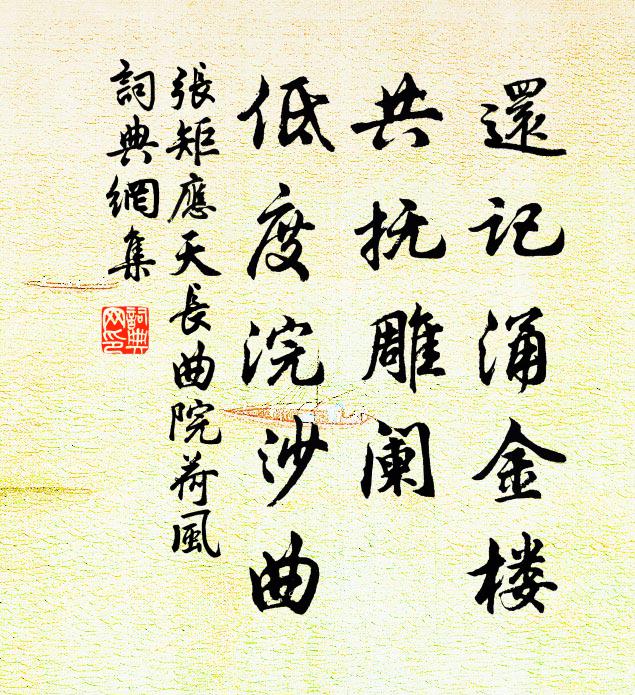 還记涌金楼
共抚雕阑
低度浣沙曲
張矩應天長曲院荷風
詞典網集
詞典网印